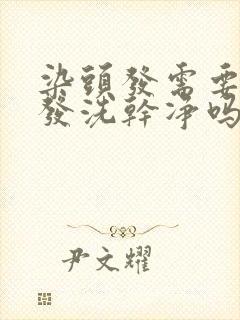 染頭發需要
發洗幹淨嗎
尹文耀